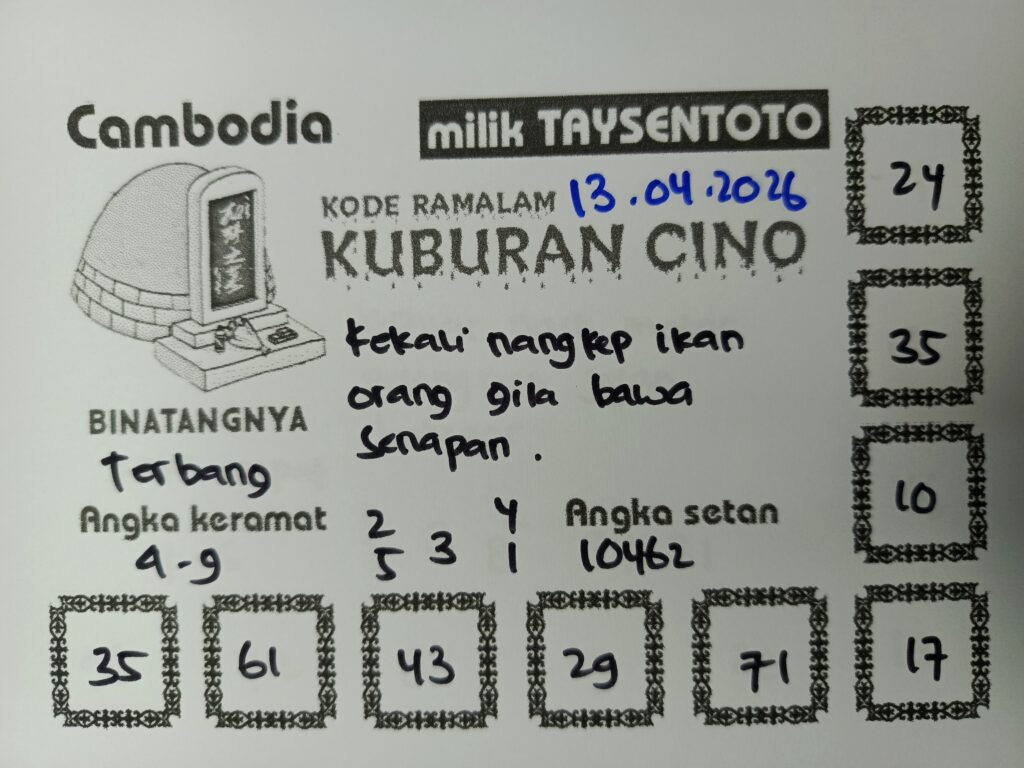 Cambodia
milik TAYSENTOTO
KODE RAMALAM 13.04.2026
KUBURAN CINO
kekali nangkep ikan
orang gila bawa
senapan.
BINATANGNYA
Terbang
Angka keramat
4-9
2 4
5 3 1
Angka setan
10462
24
35
10
17
35 61 43 29 71